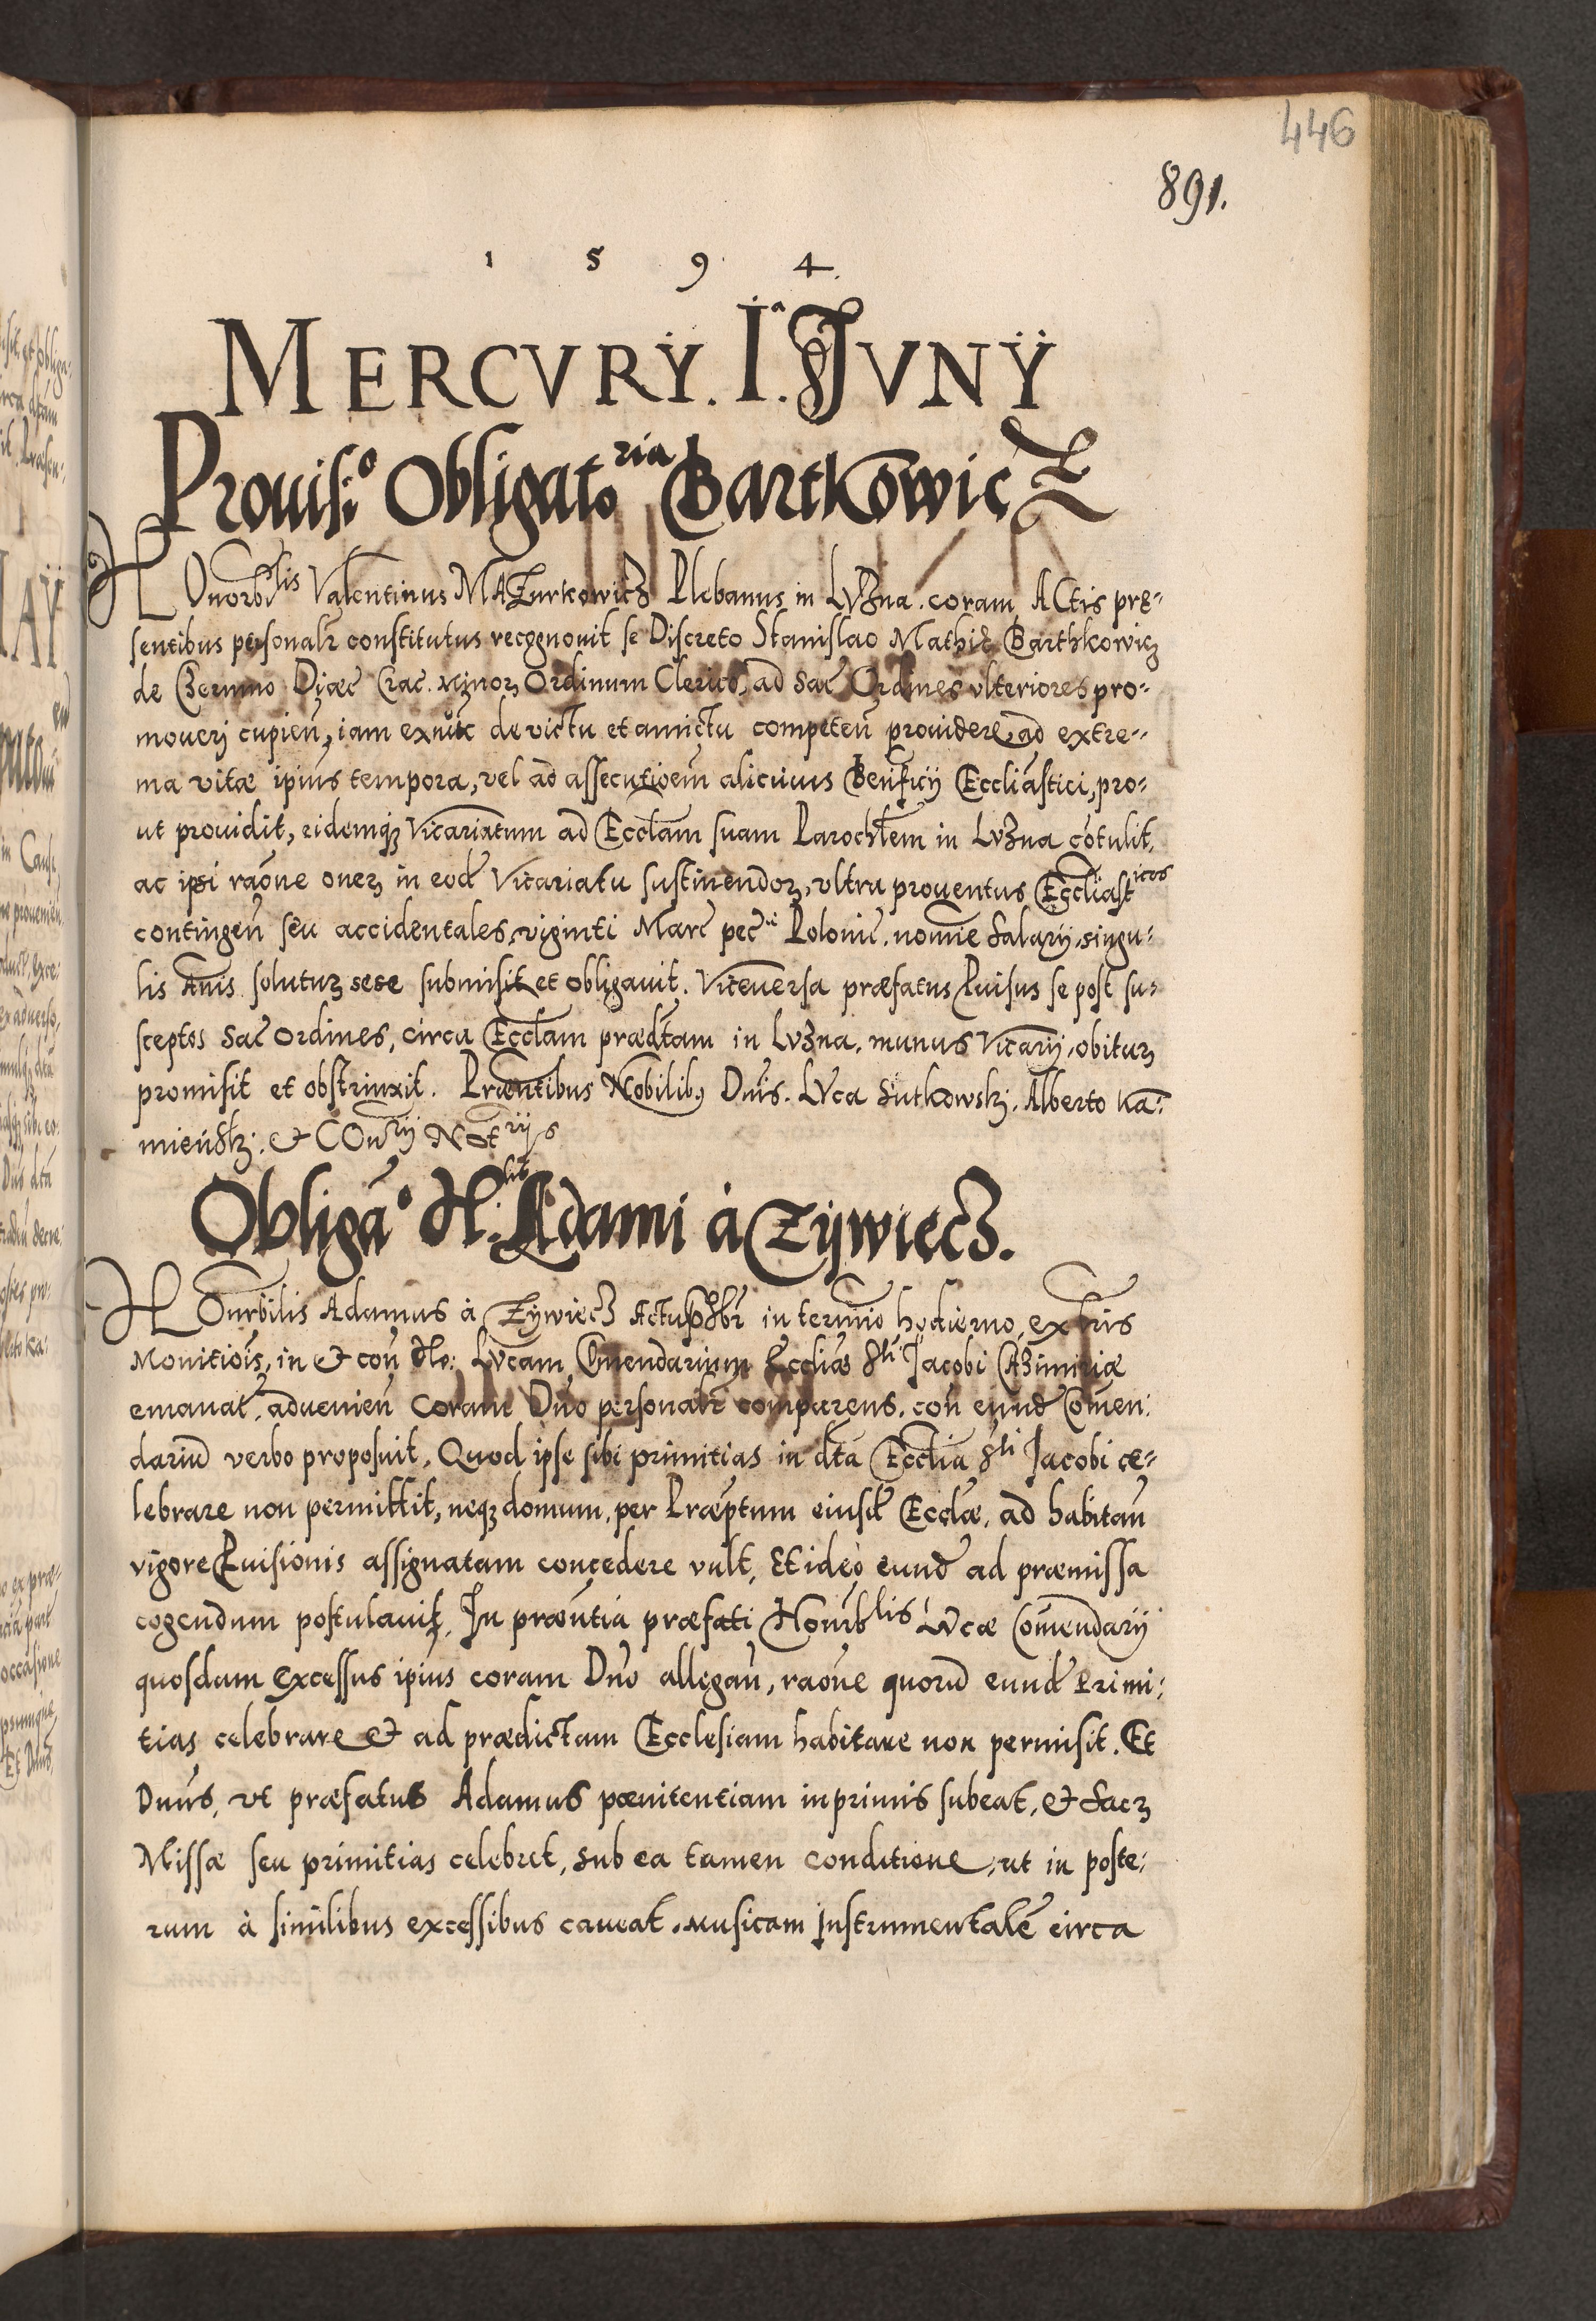 446
891.
1 5 9 4.
MERCVRŸ. I.ª JVNŸ
Prouisi:º Obligatoria Bartkowicz
HOnorbilis Valentinus MAZurkowicz Plebanus in LVZna. coram ACtis præ-
sentibus personalr constitutus recognouit se Discreto Stanislao Mathiæ Barthkowicz
de Czermno Diæc Crac. minorz Ordinum Clerico, ad Sac Ordines vlteriores pro-
moueri cupien, iam exnunc de victu et amictu competen prouidere, ad extre-
ma vitæ ipius tempora, vel ad assecutioem alicuius Benficij Eccliastici, pro-
ut prouidit, eidemqz Vicariatum ad Ecclam suam Parochlem in LvZna cotulit,
ac ipsi raone onerz in eod Vicariatu sustinendorz, vltra prouentus Eccliasticos
contingen seu accidentales, viginti Marc pec Poloniè. nomine Salarij, singu-
lis Annis soluturz sese submisit et obligauit. Viceuersa præfatus Puisus se post su-
sceptos Sac Ordines, circa Ecclam prædtam in LvZna, munus Vicarij, obiturz
promisit et obstrinxit. Præntibus Nobilibz Dnis. LVca Sutkowskj. Alberto Ka-
mienskj. & COnrij Notrijs
Obligaº H.lis Adami à Zÿwiecz.
HOnrbilis Adamus à Zÿwiecz Actu pr̃sbr in termino hodierno, ex lris
Monitiois, in & con Ho: Lvcam, Comendarium Eccliæ Sti Jacobi CaZimiriæ
emanat, aduenien Coram Dno personalr comparens, con eund Comen-
dariu verbo proposuit, Quod ipse sibi primitias in dta Ecclia Sti Jacobi ce-
lebrare non permittit, neqz domum, per Præptum eiusd Ecclæ, ad habitan
vigore Puisionis assignatam concedere vult, Et ideò eund ad præmissa
cogendum postulauit, In præntia præfati Honrblis LVcæ Comendarij
quosdam excessus ipius coram Dno allegan, raone quoru eund Primi-
tias celebrare & ad prædictam Ecclesiam habitare non permisit. Et
Dnus, vt præfatus Adamus pœnitentiam inprimis subeat, & Sacrz
Missæ seu primitias celebret, sub ea tamen conditione, ut in poste-
rum à similibus excessibus caueat. musicam Instrumentalẽ circa